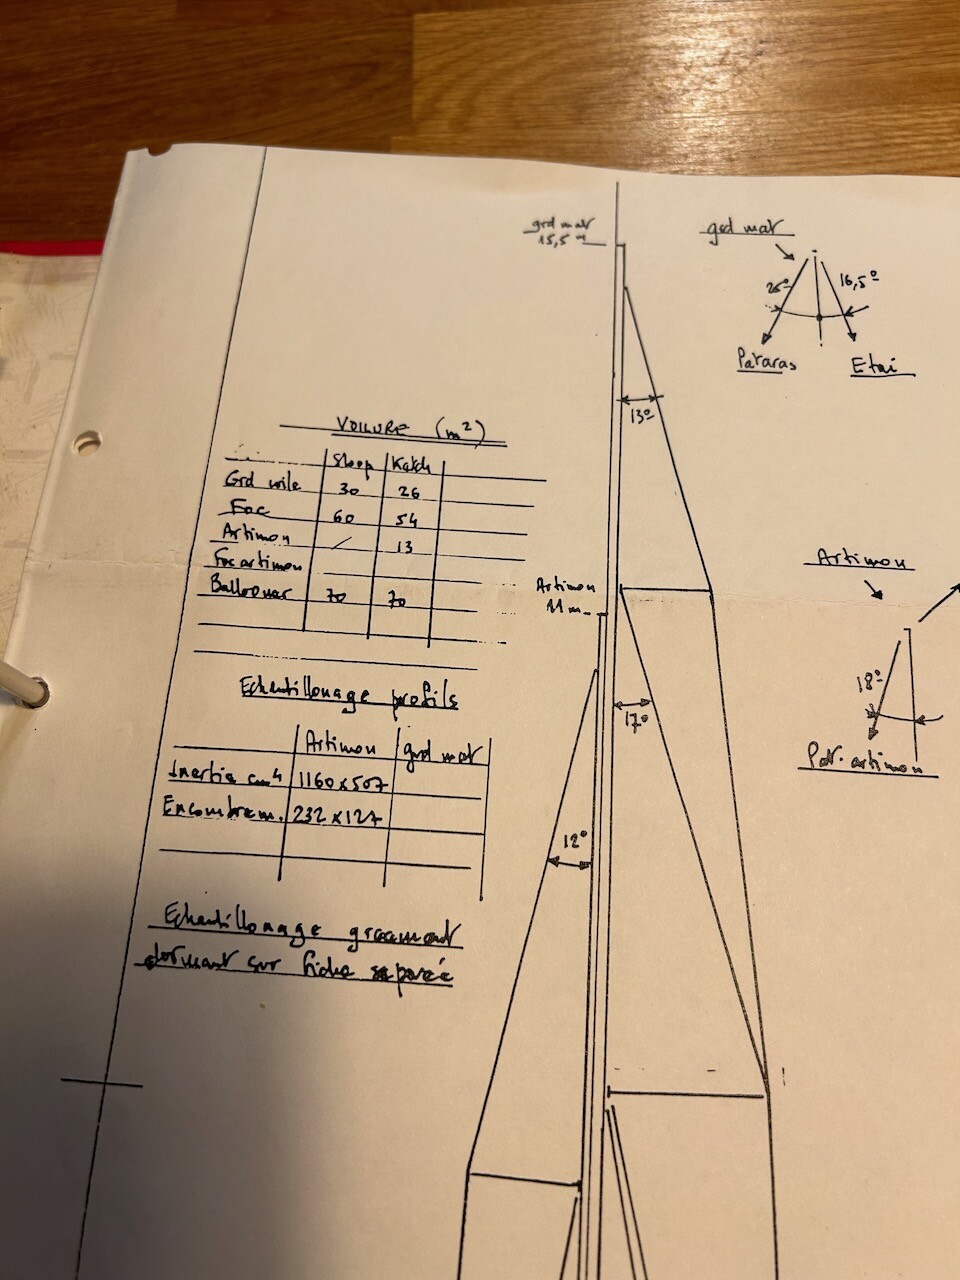 grd mat
15,5 m
grd mat
26°
16,5°
Pataras
Etai
13°
VOILURE (m²)
Sloop Ketch
Grd voile 30 26
Foc 60 54
Artimon / 13
Foc artimon
Ballooner 70 70
Artimon
11 m
Artimon
18°
Pat. artimon
Echantillonage profils
17°
Artimon grd mat
Inertie cm⁴ 1160x507
Encombrem. 232x127
12°
Echantillonage greement
dormant sur fiche separée